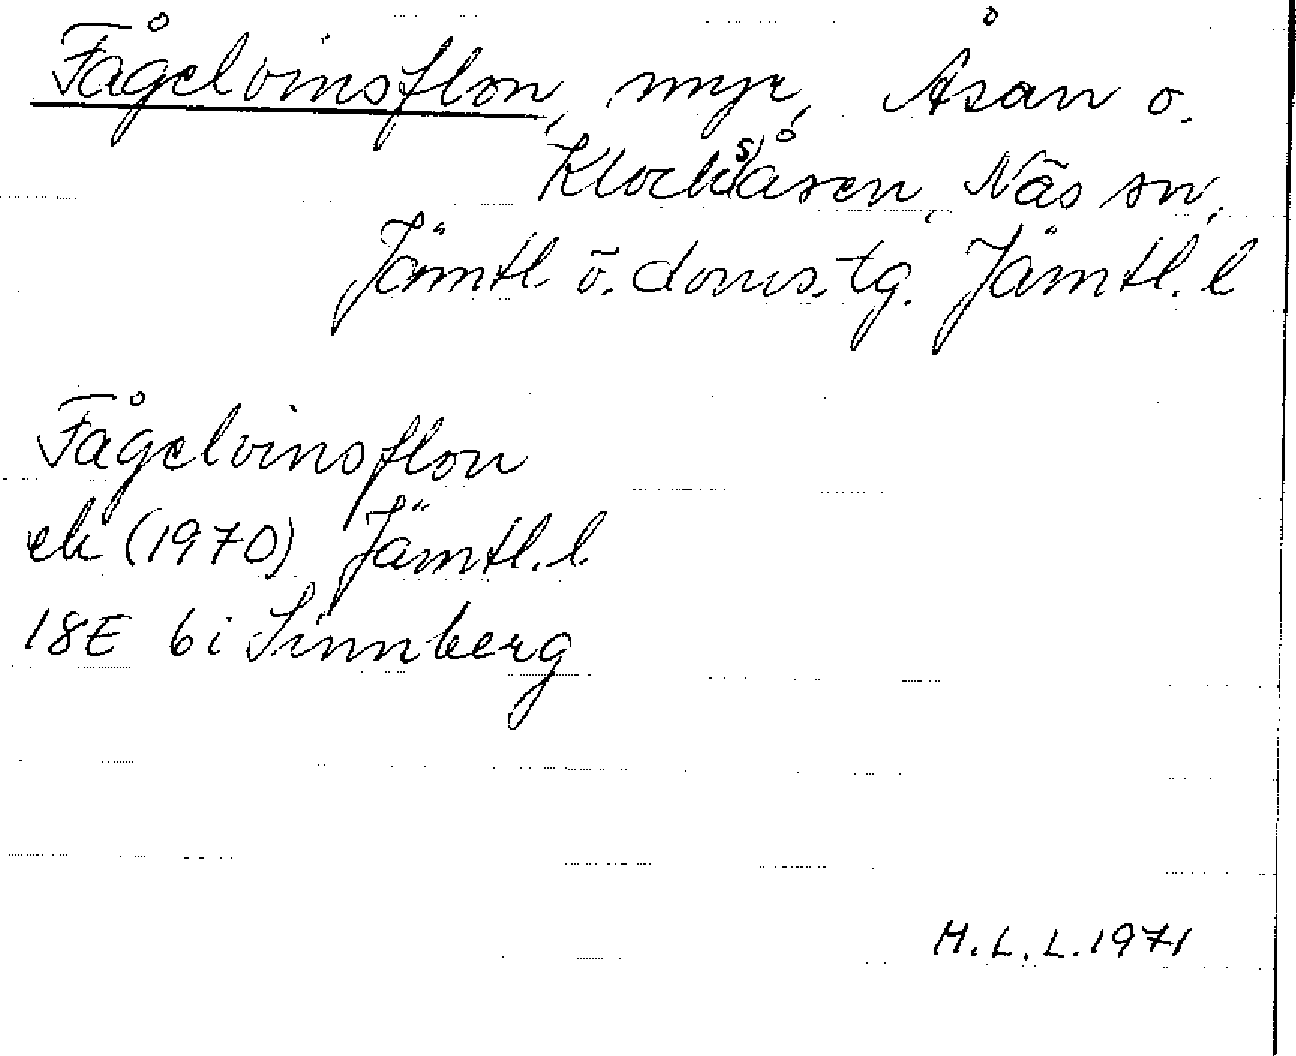 Fågelvinsflon, myr, Åsan o.
Klocksåsen, Näs sn,
Jämtl. ö. doms. tg. Jämtl. l
Fågelvinsflon
ek (1970) Jämtl. l.
18E 6i Sinnberg
H.L.L. 1971